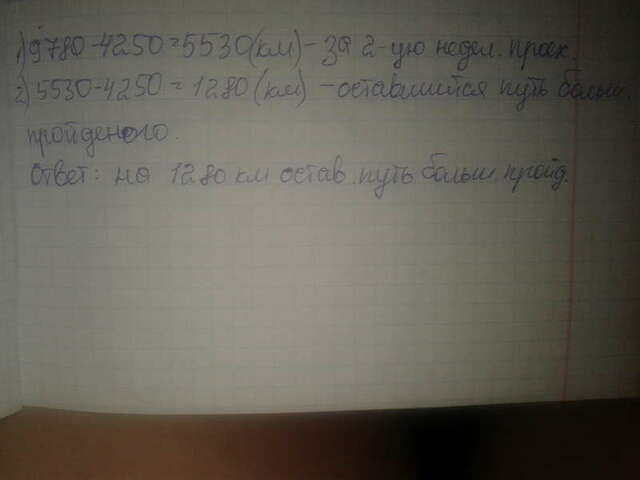 1) 9780-4250=5530(км)- за 2-ую недел. проех.
2) 5530-4250=1280(км) -оставшийся путь больш.
пройденого.
Ответ: на 1280 км остав. путь больш. пройд.